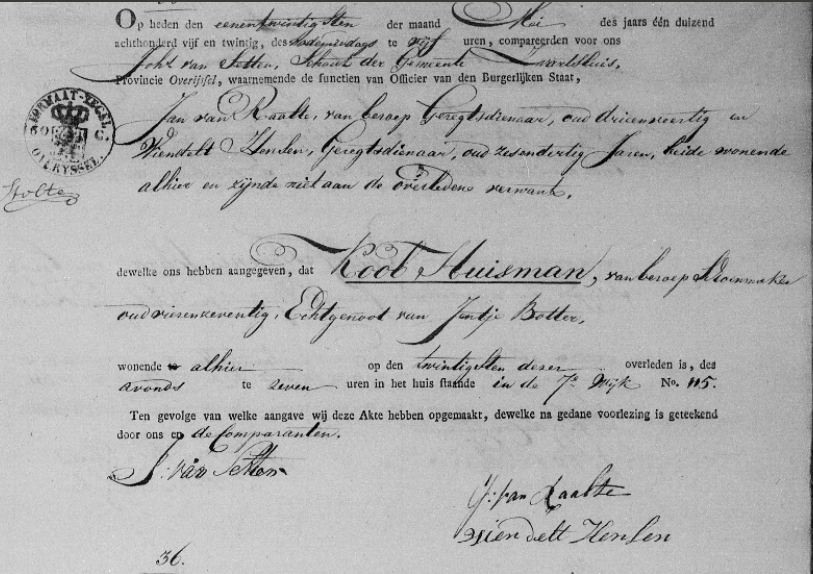 Op heden den eenentwintigsten der maand Mei des jaars één duizend
achthonderd vijf en twintig, des nademiddags te vijf uren, compareerden voor ons
Joht van Setten, Schout der Gemeente Zwartsluis,
Provincie Overijssel, waarnemende de functien van Officier van den Burgerlijken Staat,
FORMAAT-ZEGEL
C.
OVERYSSEL.
Jan van Raalte, van beroep Geregtsdienaar, oud drieenveertig en
Hensen, Geregtsdienaar, oud zesendertig Jaren, beide wonende
alhier en zijnde niet aan de overledene verwant.
Stolte
dewelke ons hebben aangegeven, dat Koob Huisman, van beroep Schoenmaker
oud Echtgenoot van Jentje Botter,
wonende te alhier op den twintigsten deser overleden is, des
avonds te zeven uren in het huis staande in de 7e Wijk No. 115.
Ten gevolge van welke aangave wij deze Akte hebben opgemaakt, dewelke na gedane voorlezing is geteekend
door ons en de Comparanten.
J: van Setten
J: van Raalte
Hensen
36.